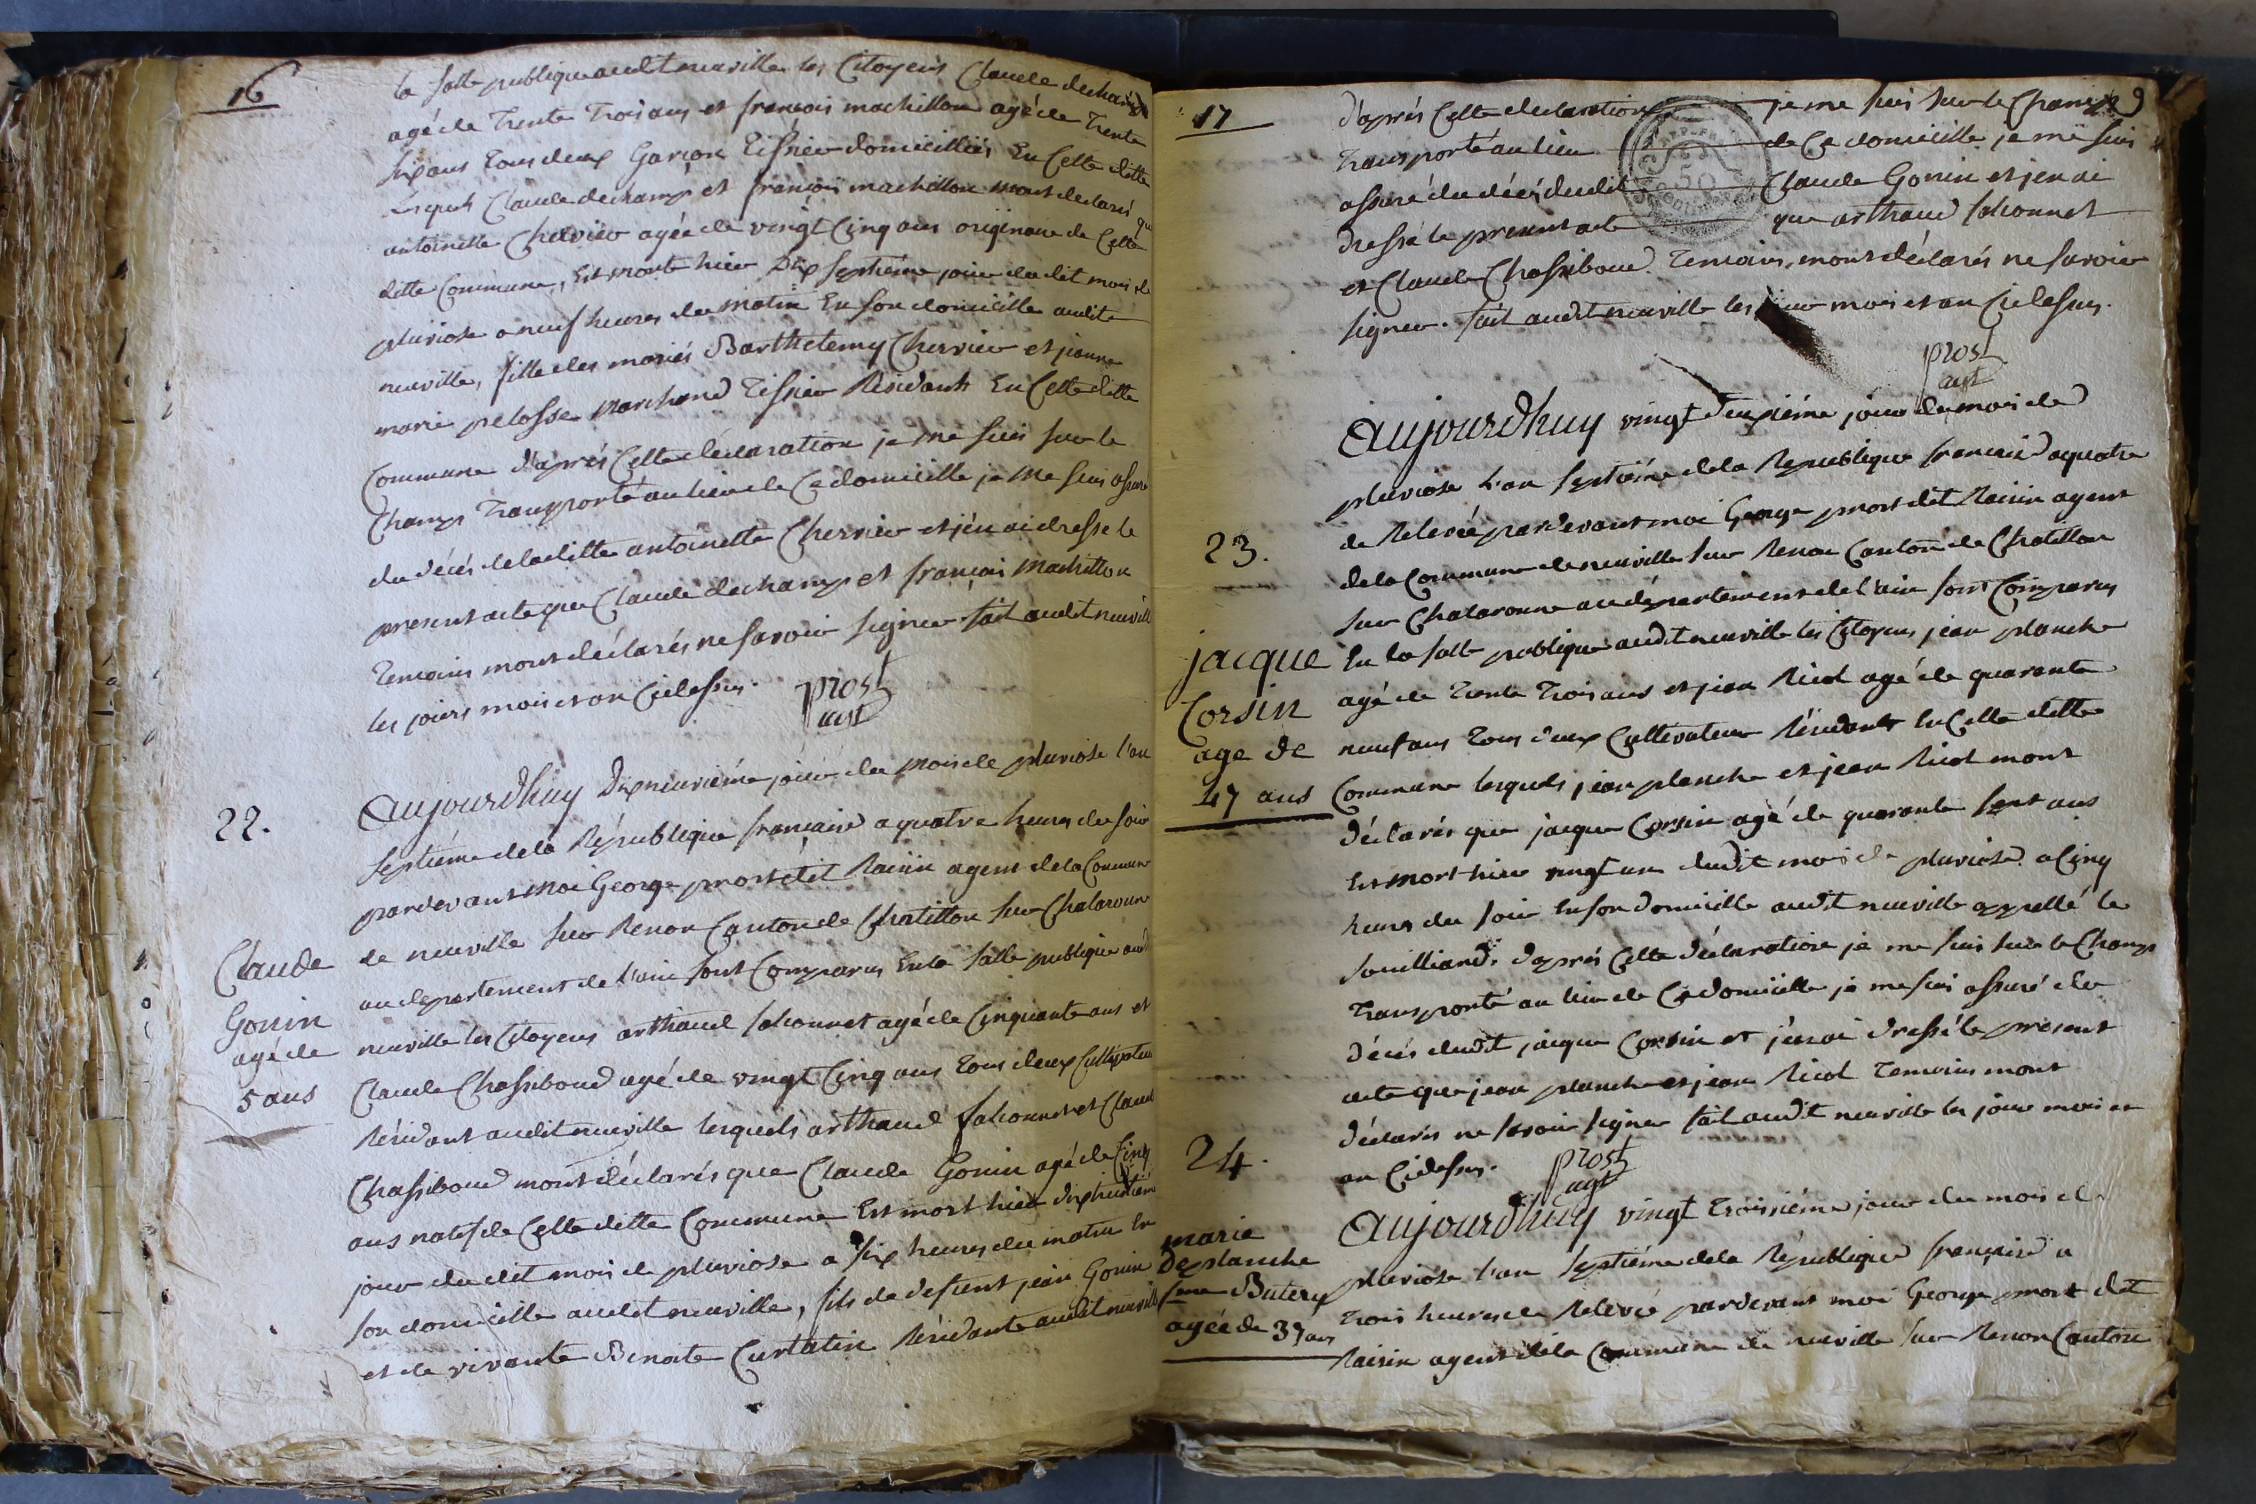 16
la salle publique audit neuville les Citoyens Claude dechamp
agé de Trente Trois ans et françois machillon agé de Trente
six ans Tous deux Garçon Tissier domicilliés En Cette ditte
lesquels Claude dechamp et françois machillon mont declarés que
antoinette Chervier agée de vingt Cinq ans originaire de Cette
ditte Commune, Est morte hier Dix septième jour du dit mois de
pluviose a neuf heures du matin En son domicille audit
neuville, fille des mariés Barthelemy Chervier et jeanne
marie pelosse marchand Tissier Residants En Cette ditte
Commune d'aprés Cette déclaration je me suis sur le
Champ Transporté au lieu de Ce domicille je me suis assuré
du décés de laditte antoinette Chervier et j'en ai dressé le
present acte que Claude dechamp et françois Machillon
Temoins mont déclarés ne savoir signer. fait audit neuville
les jours mois et an Cidessus.
prost
agt
22.
Claude
Gonin
agé de
5 ans
Aujourdhuy Dixneuvième jour du mois de pluviose l'an
septième de la République française a quatre heures du soir
pardevant Moi George prost dit Raisin agent de la Commune
de neuville sur Renon Canton de Chatillon sur Chalaronne
au departement de l'ain sont Comparus En la salle publique audit
neuville les Citoyens arthaud falconnet agé de Cinquante ans et
Claude Chassiboud agé de vingt Cinq ans Tous deux Cultivateurs
Résidant audit neuville lesquels arthaud falconnet et Claude
Chassiboud mont déclarés que Claude Gonin agé de Cinq
ans natif de Cette ditte Commune Est mort hier dixhuitième
jour du dit mois de pluviose a six heures du matin En
son domicille audit neuville, fils de defunt jean Gonin
et de vivante Benoite Curtatin Résidante audit neuville
17
9
d'aprés Cette declaration je me suis sur le Champ
Transporté au lieu de Ce domicille je me suis
assuré du décés dudit Claude Gonin et jen ai
dressé le present acte que arthaud falconnet
et Claude Chassiboud Temoins, mont déclarés ne savoir
signer. fait audit neuville les jour mois et an Cidessus.
prost
agt
23.
jacque
Corsin
age de
47 ans
Aujourdhuy vingt deuxième jour du mois de
pluviose l'an septième de la Republique française a quatre
de Relevée pardevant moi George prost dit Raisin agent
de la Commune de neuville sur Renon Canton de Chatillon
sur Chalaronne au département de l'ain sont Comparus
En la salle publique audit neuville les Citoyens jean planche
agé de Trente Trois ans et jean Nicol agé de quarante
neuf ans Tous deux Cultivateur Résidants En Cette ditte
Commune lesquels jean planche et jean Nicol mont
déclarés que jacque Corsin agé de quarante sept ans
Est mort hier vingt un dudit mois de pluviose a Cinq
heures du soir En son domicille audit neuville appellé le
souilliard. d'aprés Cette déclaration je me suis sur le Champ
Transporté au lieu de Ce domicille je me suis assuré du
décés dudit jacque Corsin et j'en ai dressé le present
acte que jean planche et jean Nicol Temoins mont
déclarés ne savoir signer fait audit neuville les jour mois et
an Cidessus.
prost
agt
24.
marie
Deplanche
fme Butery
agée de 39 ans
Aujourdhuy vingt Troisième jour du mois de
pluviose l'an septième de la République française a
Trois heures de Relevée pardevant moi George prost dit
Raisin agent de la Commune de neuville sur Renon Canton